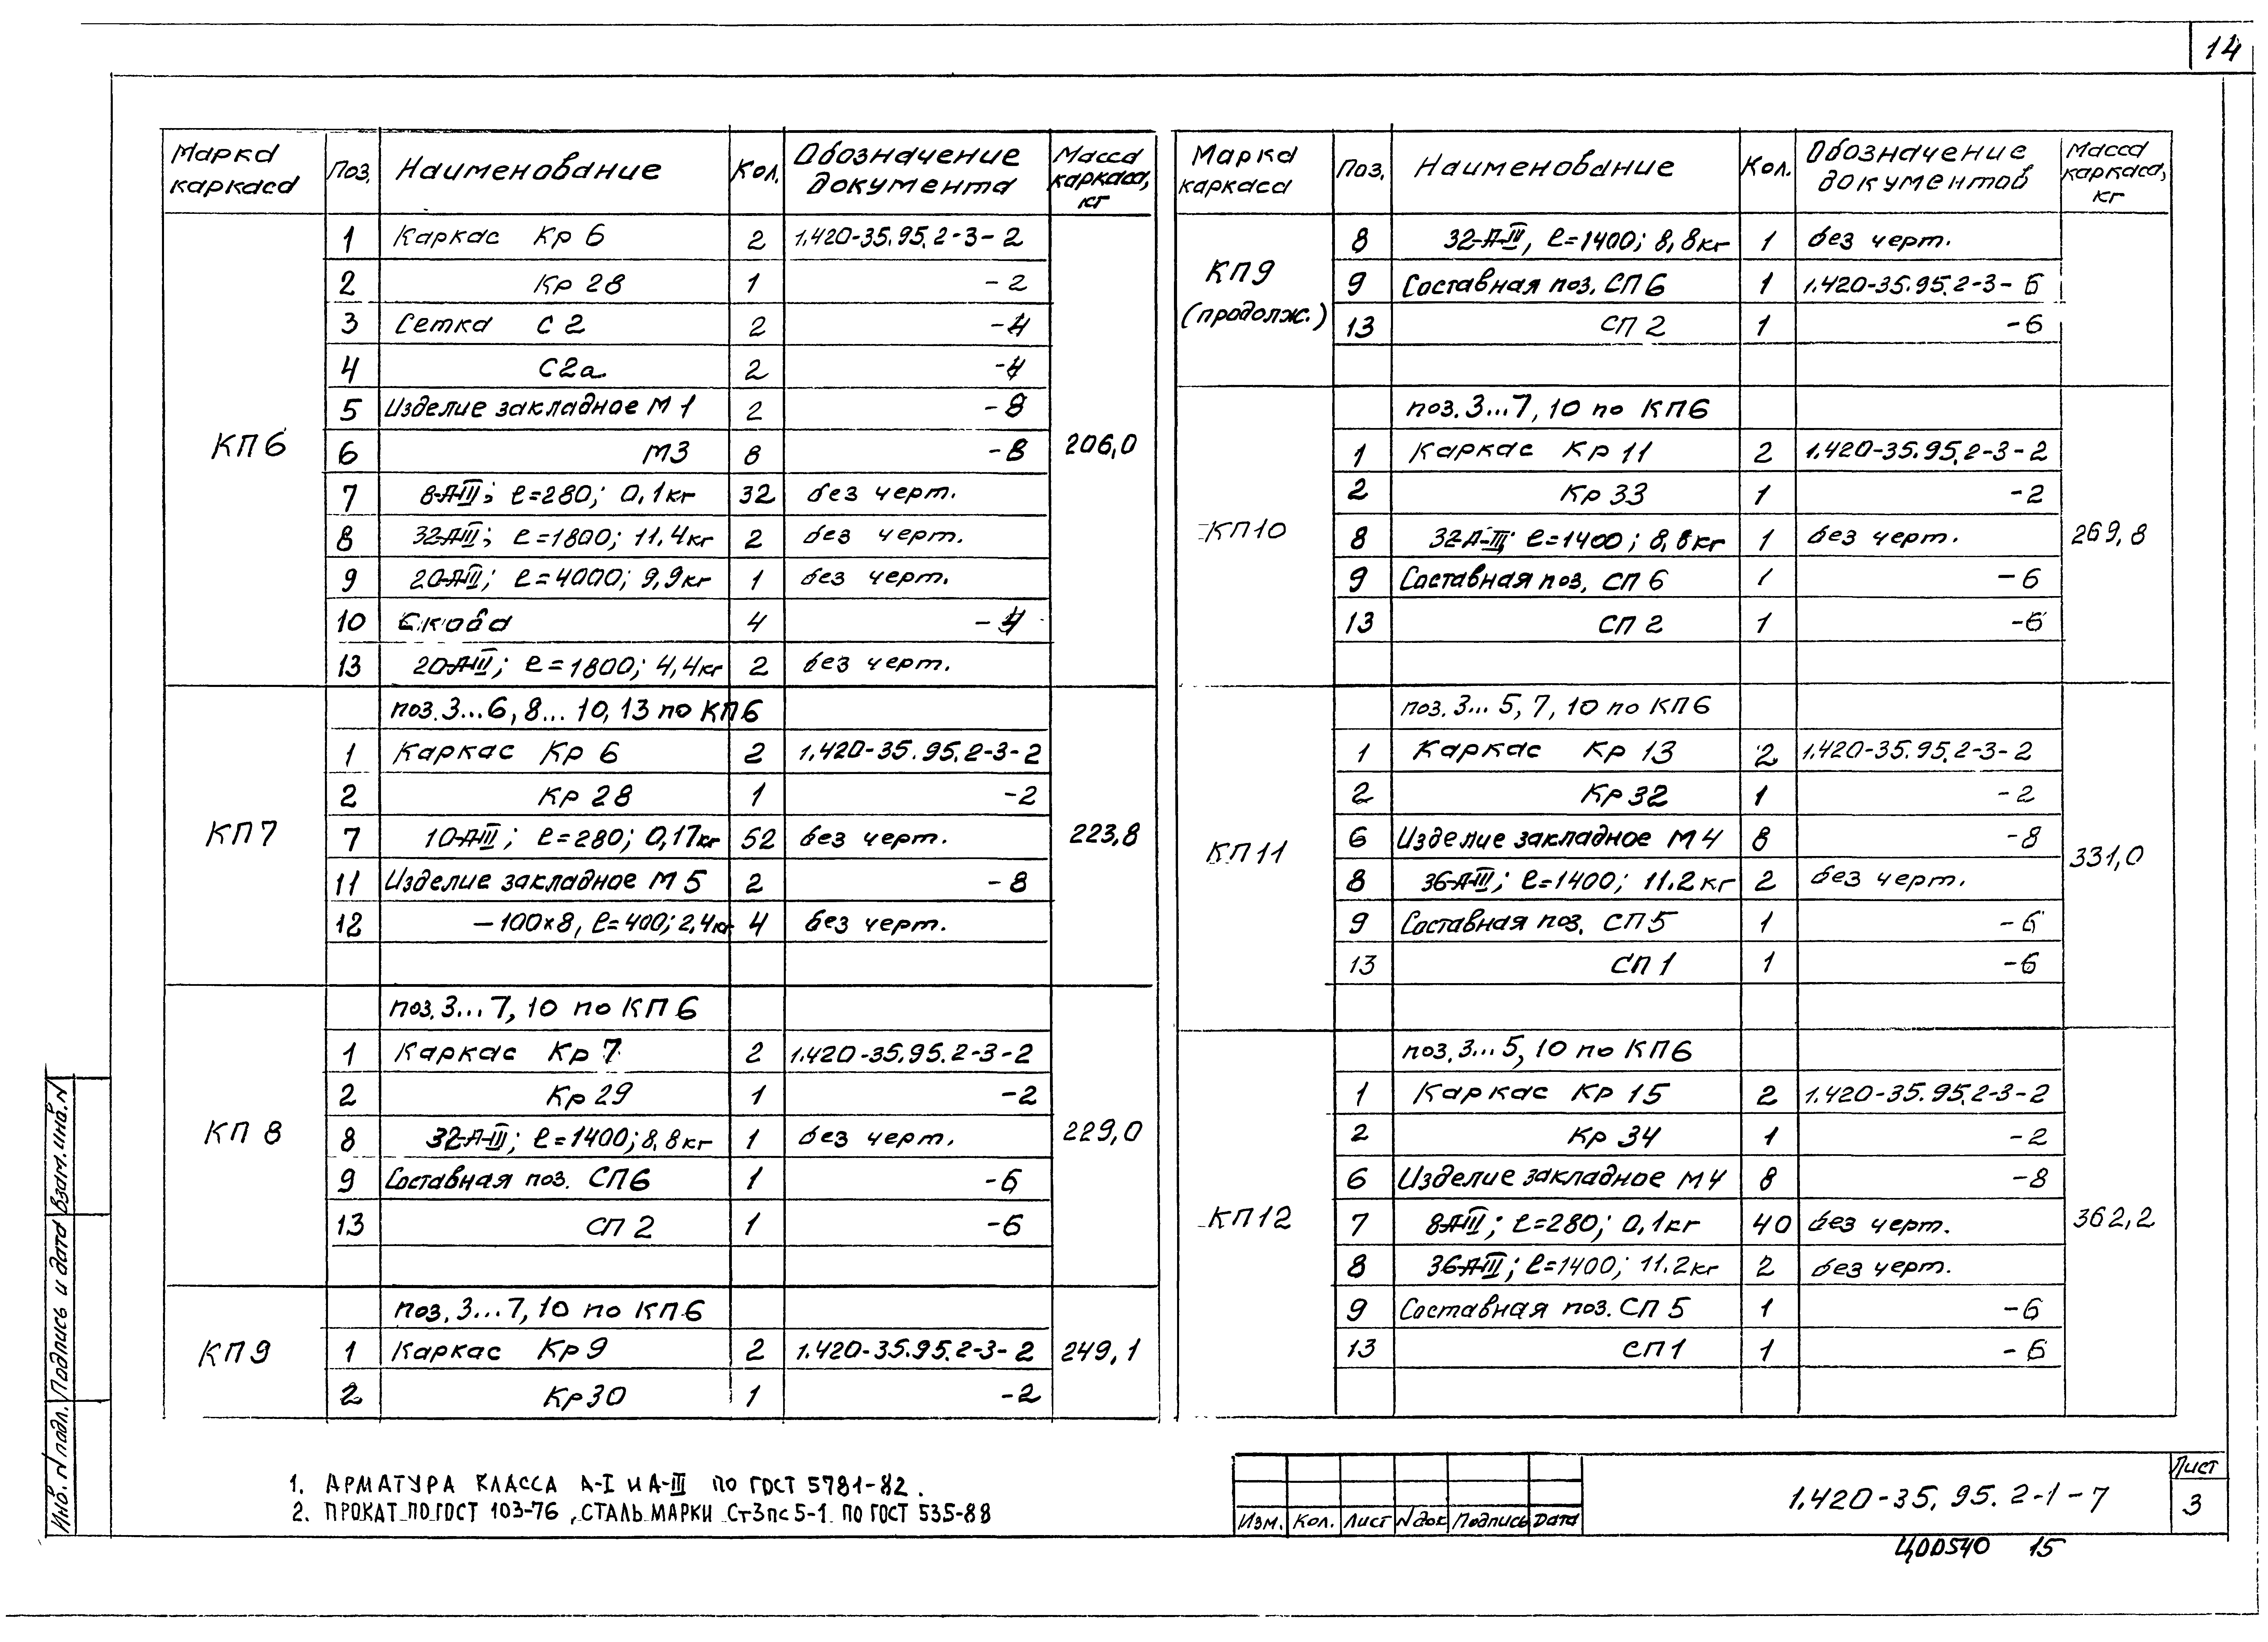 14
Марка каркаса Поз. Наименование Кол. Обозначение документа Масса каркаса, кг
КП6 206,0
1 Каркас Кр 6 2 1.420-35.95.2-3-2
2 Кр 28 1 -2
3 Сетка С 2 2 -4
4 С2а 2 -4
5 Изделие закладное М 1 2 -8
6 М3 8 -8
7 8-А-III; ℓ=280; 0,1кг 32 без черт.
8 32-А-III; ℓ=1800; 11,4кг 2 без черт.
9 20-А-III; ℓ=4000; 9,9кг 1 без черт.
10 Скоба 4 -4
13 20-А-III; ℓ=1800; 4,4кг 2 без черт.
КП7 223,8
поз. 3...6, 8...10, 13 по КП6
1 Каркас Кр 6 2 1.420-35.95.2-3-2
2 Кр 28 1 -2
7 10-А-III; ℓ=280; 0,17кг 52 без черт.
11 Изделие закладное М 5 2 -8
12 -100×8, ℓ=400; 2,4кг 4 без черт.
КП 8 229,0
поз. 3...7, 10 по КП 6
1 Каркас Кр 7 2 1.420-35.95.2-3-2
2 Кр 29 1 -2
8 32-А-III; ℓ=1400; 8,8кг 1 без черт.
9 Составная поз. СП6 1 -6
13 СП 2 1 -6
КП9 249,1
поз. 3...7, 10 по КП6
1 Каркас Кр 9 2 1.420-35.95.2-3-2
2 Кр30 1 -2
Марка каркаса Поз. Наименование Кол. Обозначение документов Масса каркаса, кг
КП9 (продолж.)
8 32-А-III, ℓ=1400; 8,8кг 1 без черт.
9 Составная поз. СП6 1 1.420-35.95.2-3-6
13 СП 2 1 -6
КП10 269,8
поз. 3...7, 10 по КП6
1 Каркас Кр 11 2 1.420-35.95.2-3-2
2 Кр 33 1 -2
8 32-А-III; ℓ=1400; 8,8кг 1 без черт.
9 Составная поз. СП 6 1 -6
13 СП 2 1 -6
КП11 331,0
поз. 3...5, 7, 10 по КП6
1 Каркас Кр 13 2 1.420-35.95.2-3-2
2 Кр 32 1 -2
6 Изделие закладное М 4 8 -8
8 36-А-III; ℓ=1400; 11.2кг 2 без черт.
9 Составная поз. СП 5 1 -6
13 СП 1 1 -6
КП12 362,2
поз. 3...5, 10 по КП6
1 Каркас Кр 15 2 1.420-35.95.2-3-2
2 Кр 34 1 -2
6 Изделие закладное М4 8 -8
7 8А-III; ℓ=280; 0,1кг 40 без черт.
8 36-А-III; ℓ=1400; 11.2кг 2 без черт.
9 Составная поз. СП 5 1 -6
13 СП1 1 -6
1. АРМАТУРА КЛАССА А-I И А-III ПО ГОСТ 5781-82.
2. ПРОКАТ ПО ГОСТ 103-76, СТАЛЬ МАРКИ Ст3пс5-1 ПО ГОСТ 535-88
Изм. Кол. Лист N док Подпись Дата
1.420-35.95.2-1-7
Лист
3
Ц00540 15
Инв. N подл. Подпись и дата Взам. инв. N